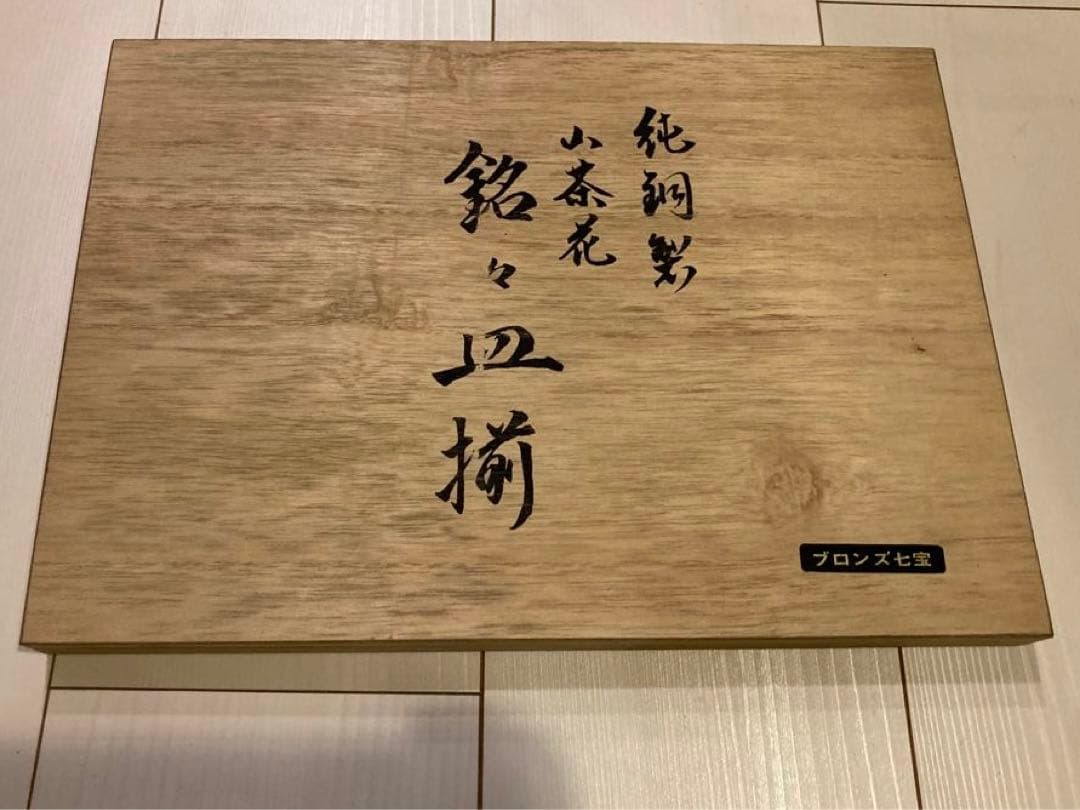 純銅製
山茶花
銘々皿揃
ブロンズ七宝